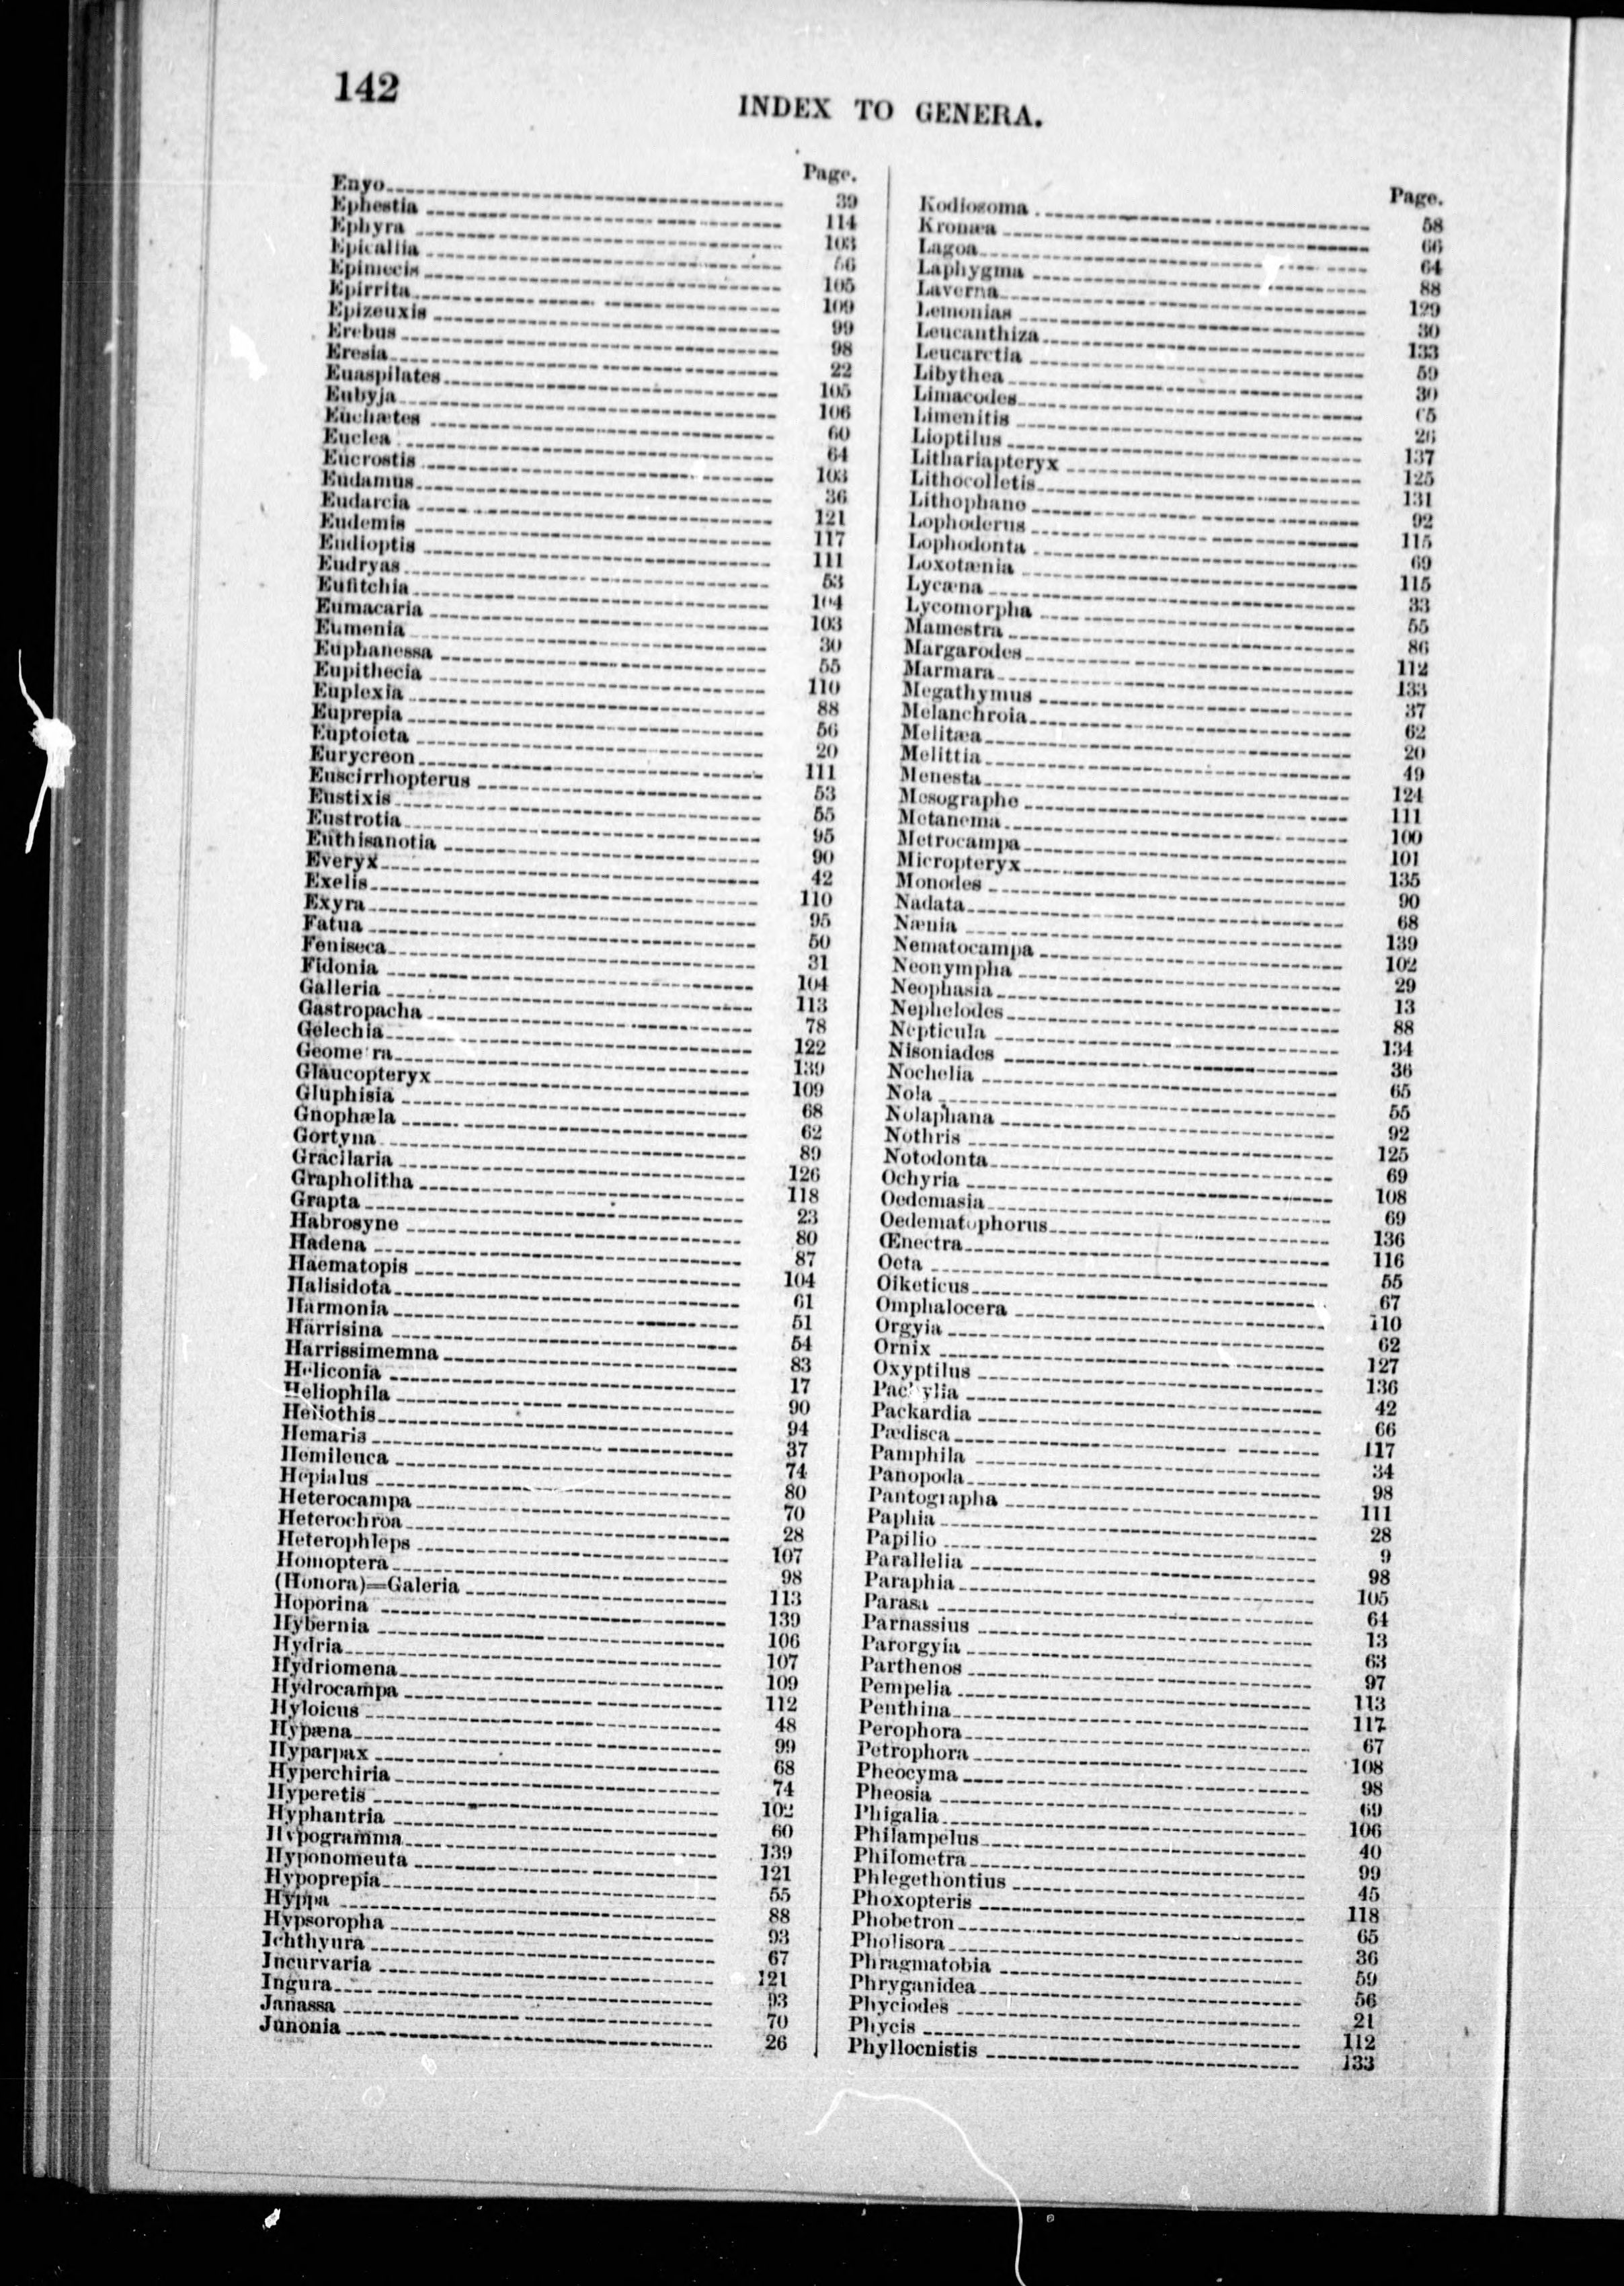 142
INDEX TO GENERA.
Page.
Enyo 39
Ephestia 114
Ephyra 103
Epicallia 56
Epimecis 105
Epirrita 109
Epizeuxis 99
Erebus 98
Eresia 22
Euaspilates 105
Eubyja 106
Euchætes 60
Euclea 64
Eucrostis 103
Eudamus 36
Eudarcia 121
Eudemis 117
Eudioptis 111
Eudryas 53
Eufitchia 104
Eumacaria 103
Eumenia 30
Euphanessa 55
Eupithecia 110
Euplexia 88
Euprepia 56
Euptoieta 20
Eurycreon 111
Euscirrhopterus 53
Eustixis 55
Eustrotia 95
Euthisanotia 90
Everyx 42
Exelis 110
Exyra 95
Fatua 50
Feniseca 31
Fidonia 104
Galleria 113
Gastropacha 78
Gelechia 122
Geometra 139
Glaucopteryx 109
Gluphisia 68
Gnophæla 62
Gortyna 89
Gracilaria 126
Grapholitha 118
Grapta 23
Habrosyne 80
Hadena 87
Haematopis 104
Halisidota 61
Harmonia 51
Harrisina 54
Harrissimemna 83
Heliconia 17
Heliophila 90
Heliothis 94
Hemaris 37
Hemileuca 74
Hepialus 80
Heterocampa 70
Heterochroa 28
Heterophleps 107
Homoptera 98
(Honora)=Galeria 113
Hoporina 139
Hybernia 106
Hydria 107
Hydriomena 109
Hydrocampa 112
Hyloicus 48
Hypæna 99
Hyparpax 68
Hyperchiria 74
Hyperetis 102
Hyphantria 60
Hypogramma 139
Hyponomeuta 121
Hypoprepia 55
Hyppa 88
Hypsoropha 93
Ichthyura 67
Incurvaria 121
Ingura 93
Janassa 70
Junonia 26
Page.
Kodiosoma 58
Kronæa 66
Lagoa 64
Laphygma 88
Laverna 129
Lemonias 30
Leucanthiza 133
Leucarctia 59
Libythea 30
Limacodes 65
Limenitis 26
Lioptilus 137
Lithariapteryx 125
Lithocolletis 131
Lithophane 92
Lophoderus 115
Lophodonta 69
Loxotænia 115
Lycæna 33
Lycomorpha 55
Mamestra 86
Margarodes 112
Marmara 133
Megathymus 37
Melanchroia 62
Melitæa 20
Melittia 49
Menesta 124
Mesographe 111
Metanema 100
Metrocampa 101
Micropteryx 135
Monodes 90
Nadata 68
Nænia 139
Nematocampa 102
Neonympha 29
Neophasia 13
Nephelodes 88
Nepticula 134
Nisoniades 36
Nochelia 65
Nola 55
Nolaphana 92
Nothris 125
Notodonta 69
Ochyria 108
Oedemasia 69
Oedematophorus 136
Œnectra 116
Oeta 55
Oiketicus 67
Omphalocera 110
Orgyia 62
Ornix 127
Oxyptilus 136
Pachylia 42
Packardia 66
Pædisca 117
Pamphila 34
Panopoda 98
Pantographa 111
Paphia 28
Papilio 9
Parallelia 98
Paraphia 105
Parasa 64
Parnassius 13
Parorgyia 63
Parthenos 97
Pempelia 113
Penthina 117
Perophora 67
Petrophora 108
Pheocyma 98
Pheosia 69
Phigalia 106
Philampelus 40
Philometra 99
Phlegethontius 45
Phoxopteris 118
Phobetron 65
Pholisora 36
Phragmatobia 59
Phryganidea 56
Phyciodes 21
Phycis 112
Phyllocnistis 133